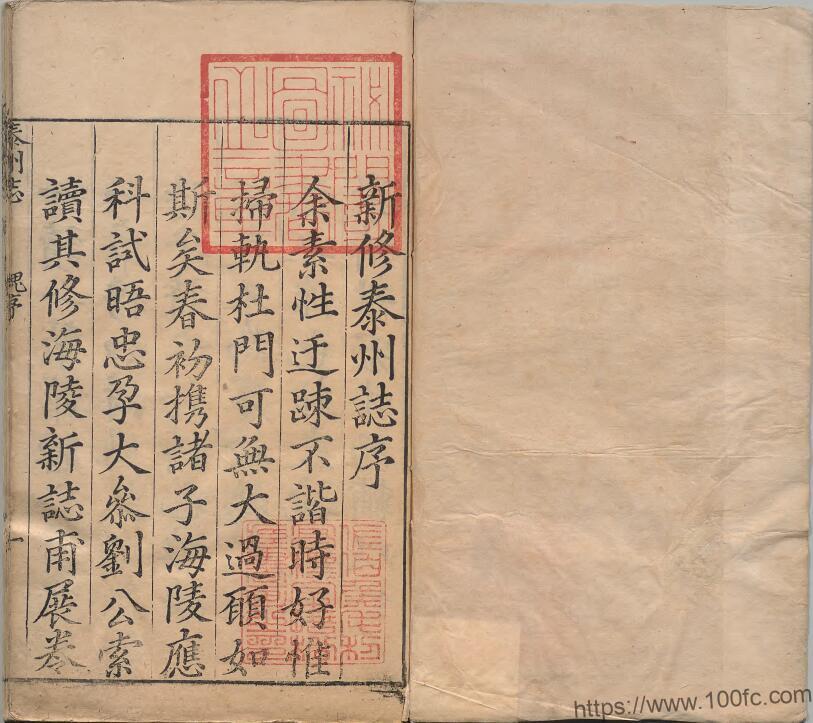 新修泰州誌序
余素性迂踈不諧時好惟
掃軌杜門可無大過頋如
斯矣春初携諸子海陵應
科試晤忠孕大叅劉公索
讀其修海陵新誌甫展卷
泰州誌
序
一
https://www.100fc.com